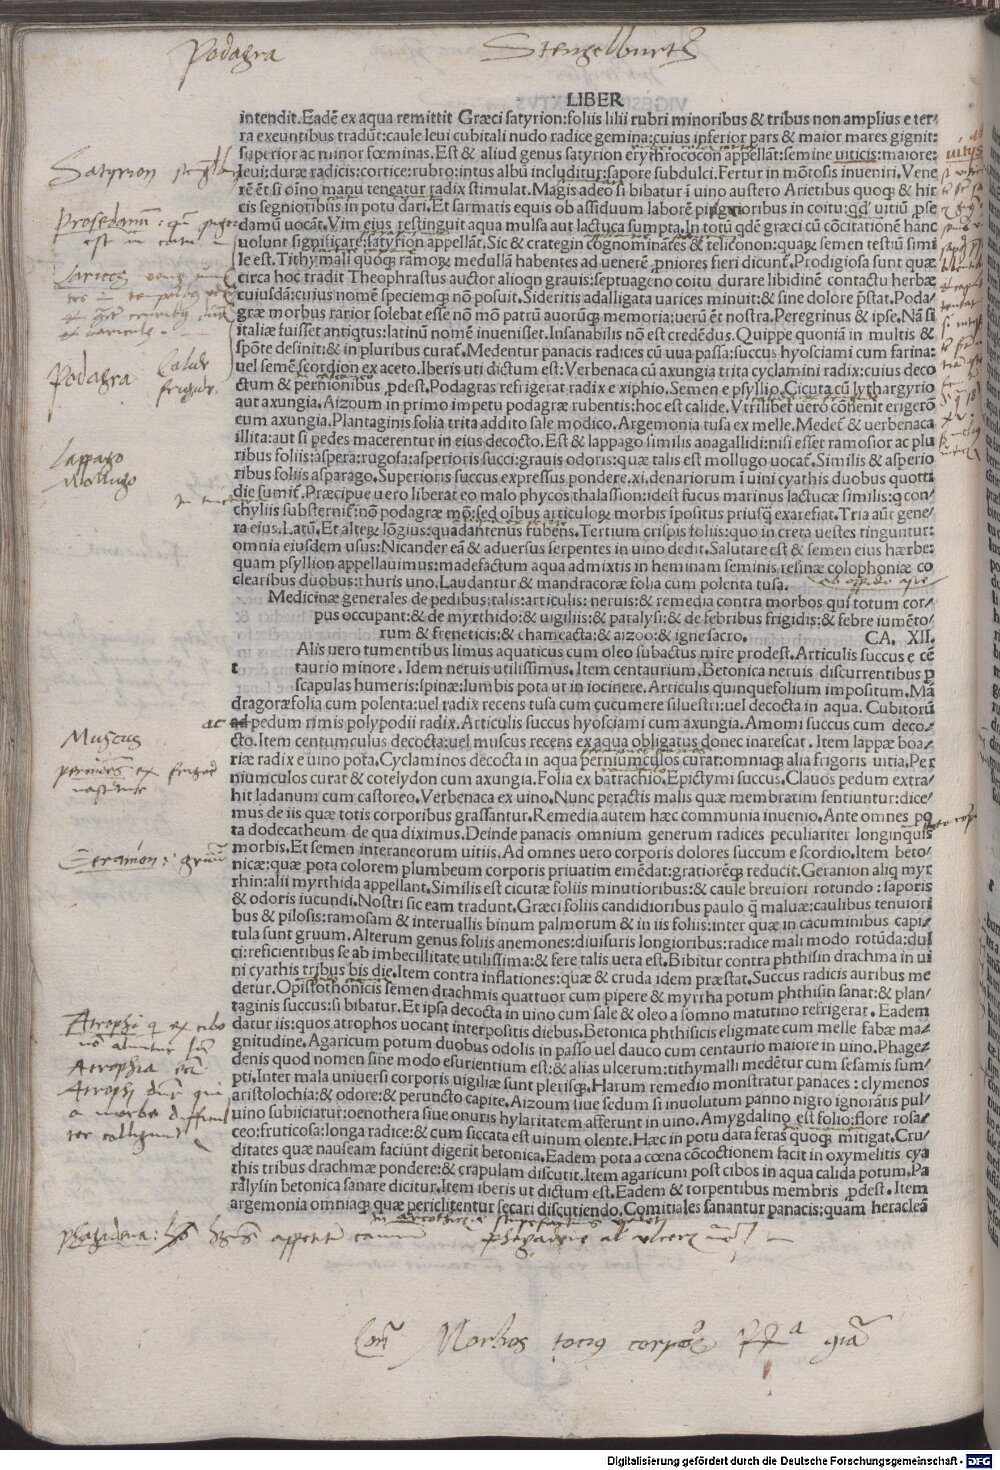 Podagra
Stengelburtz
LIBER
intendit. Eadē ex aqua remittit Græci satyrion: foliis lilii rubri minoribus & tribus non amplius e ter/
ra exeuntibus tradūt: caule leui cubitali nudo radice gemina: cuius inferior pars & maior mares gignit:
superior ac minor fœminas. Est & aliud genus satyrion erythrococon appellāt: semine uiticis: maiore:
leui: duræ radicis: cortice: rubro: intus albū includitur: sapore subdulci. Fertur in mōtosis inueniri. Vene
rē ēt si oīno manu teneatur radix stimulat. Magis adeo si bibatur ī uino austero Arietibus quoqꝫ & hir
cis segnioribus in potu dari. Et sarmatis equis ob assiduum laborē pigrioribus in coitu: qď uitiū ꝓse
damū uocāt. Vim eius restinguit aqua mulsa aut lactuca sumpta. In totū qdē græci cū cōcitationē hanc
uolunt significare: satyrion appellāt. Sic & crategin cognominātes & telicōnon: quarꝫ semen testiū simi
le est. Tithymali quoqꝫ ramorꝫ medullā habentes ad uenerē ꝓniores fieri dicunt̄. Prodigiosa sunt quæ
circa hoc tradit Theophrastus auctor alioqn grauis: septuageno coitu durare libidinē contactu herbæ
cuiusdā: cuius nomē speciemqꝫ nō posuit. Sideritis adalligata uarices minuit: & sine dolore p̄stat. Poda/
græ morbus rarior solebat esse nō mō patrū auorūqꝫ memoria: uerū ēt nostra. Peregrinus & ipse. Nā si
italiæ fuisset antiqtus: latinū nomē inuenisset. Insanabilis nō est credēdus. Quippe quoniā in multis &
spōte desinit: & in pluribus curat̄. Medentur panacis radices cū uua passa: succus hyosciami cum farina:
uel semē scordion ex aceto. Iberis uti dictum est: Verbenaca cū axungia trita cyclamini radix: cuius deco
ctum & pernionibus ꝓdest. Podagras refrigerat radix e xiphio. Semen e psyllio. Cicuta cū lythargyrio
aut axungia. Aizoum in primo impetu podagræ rubentis: hoc est calide. Vtrilibet uero cōuenit erigerō
cum axungia. Plantaginis folia trita addito sale modico. Argemonia tusa ex melle. Medet̄ & uerbenaca
illita: aut si pedes macerentur in eius decocto. Est & lappago similis anagallidi: nisi esset ramosior ac plu
ribus foliis: aspera: rugosa: asperioris succi: grauis odoris: quæ talis est mollugo uocat̄. Similis & asperio
ribus foliis asparago. Superioris succus expressus pondere. xi. denariorum ī uini cyathis duobus quotti
die sumit̄. Præcipue uero liberat eo malo phycos thalassion: idest fucus marinus lactucæ similis: q con/
chyliis substernit̄: nō podagræ mō: sed oībus articulorꝫ morbis īpositus priusq̄ exarefiat. Tria aūt gene/
ra eius. Latū. Et alterꝫ lōgius: quadantenus rubens. Tertium crispis foliis: quo in creta uestes tinguntur:
omnia eiusdem usus: Nicander eā & aduersus serpentes in uino dedit. Salutare est & semen eius hærbe:
quam psyllion appellauimus: madefactum aqua admixtis in heminam seminis resinæ colophoniæ co
clearibus duobus: thuris uno. Laudantur & mandracoræ folia cum polenta tusa.
Medicinæ generales de pedibus: talis: articulis: neruis: & remedia contra morbos qui totum cor/
pus occupant: & de myrthido: & uigiliis: & paralysi: & de febribus frigidis: & febre iumēto/
rum & freneticis: & chameacta: & aizoo: & igne sacro. CA. XII.
t Alis uero tumentibus limus aquaticus cum oleo subactus mire prodest. Articulis succus e cē
taurio minore. Idem neruis utilissimus. Item centaurium. Betonica neruis discurrentibus ꝑ
scapulas humeris: spinæ: lumbis pota ut in iocinere. Articulis quinquefolium impositum. Mā
dragoræ folia cum polenta: uel radix recens tusa cum cucumere siluestri: uel decocta in aqua. Cubitorū
ad pedum rimis polypodii radix. Articulis succus hyosciami cum axungia. Amomi succus cum deco/
cto. Item centumculus decocta: uel muscus recens ex aqua obligatus donec inarescat. Item lappæ boa/
riæ radix e uino pota. Cyclaminos decocta in aqua perniumculos curat: omniaqꝫ alia frigoris uitia. Per
niumculos curat & cotelydon cum axungia. Folia ex batrachio. Epictymi succus. Clauos pedum extra/
hit ladanum cum castoreo. Verbenaca ex uino. Nunc peractis malis quæ membratim sentiuntur: dice/
mus de iis quæ totis corporibus grassantur. Remedia autem hæc communia inuenio. Ante omnes po
ta dodecatheum de qua diximus. Deinde panacis omnium generum radices peculiariter longinquis
morbis. Et semen interaneorum uitiis. Ad omnes uero corporis dolores succum e scordio. Item beto/
nicæ: quæ pota colorem plumbeum corporis priuatim emēdat: gratiorēqꝫ reducit. Geranion aliq myr
rhin: alii myrthida appellant. Similis est cicutæ foliis minutioribus: & caule breuiori rotundo: saporis
& odoris iucundi. Nostri sic eam tradunt. Græci foliis candidioribus paulo q̄ maluæ: caulibus tenuiori
bus & pilosis: ramosam & interuallis binum palmorum & in iis foliis: inter quæ in cacuminibus capi/
tula sunt gruum. Alterum genus foliis anemones: diuisuris longioribus: radice mali modo rotūda: dul
ci: reficientibus se ab imbecillitate utilissima: & fere talis uera est. Bibitur contra phthisin drachma in ui
ni cyathis tribus bis die. Item contra inflationes: quæ & cruda idem præstat. Succus radicis auribus me
detur. Opisthothonicis semen drachmis quattuor cum pipere & myrrha potum phthisin sanat: & plan/
taginis succus: si bibatur. Et ipsa decocta in uino cum sale & oleo a somno matutino refrigerat. Eadem
datur iis: quos atrophos uocant interpositis diebus. Betonica phthisicis eligmate cum melle fabæ ma/
gnitudine. Agaricum potum duobus odolis in passo uel dauco cum centaurio maiore in uino. Phage/
denis quod nomen sine modo esurientium est: & alias ulcerum: tithymalli medētur cum sesamis sum/
pti. Inter mala uniuersi corporis uigiliæ sunt plerisqꝫ. Harum remedio monstratur panaces: clymenos
aristolochia: & odore: & peruncto capite. Aizoum siue sedum si inuolutum panno nigro ignorātis pul/
uino subiiciatur: oenothera siue onuris hylaritatem afferunt in uino. Amygdalino est folio: flore rosa/
ceo: fruticosa: longa radice: & cum siccata est uinum olente. Hæc in potu data feras quoqꝫ mitigat. Cru/
ditates quæ nauseam faciūnt digerit betonica. Eadem pota a cœna cōcoctionem facit in oxymelitis cya
this tribus drachmæ pondere: & crapulam discutit. Item agaricum post cibos in aqua calida potum. Pa
ralysin betonica sanare dicitur. Item iberis ut dictum est. Eadem & torpentibus membris ꝓdest. Item
argemonia omniaqꝫ quæ periclitentur secari discutiendo. Comitiales sanantur panacis: quam heracleā
Satyrion
Prosedamū
Varices
Podagra
Calidæ
frigidæ
Lappago
Mollugo
ac
Muscus
perniones ex frigore
nascuntur
Geranion: gruum
Atrophi q ex cibo
Atrophia
Atrophi
a morbo
uitex
Phagedena:
Morbos totius corporis
Digitalisierung gefördert durch die Deutsche Forschungsgemeinschaft - DFG